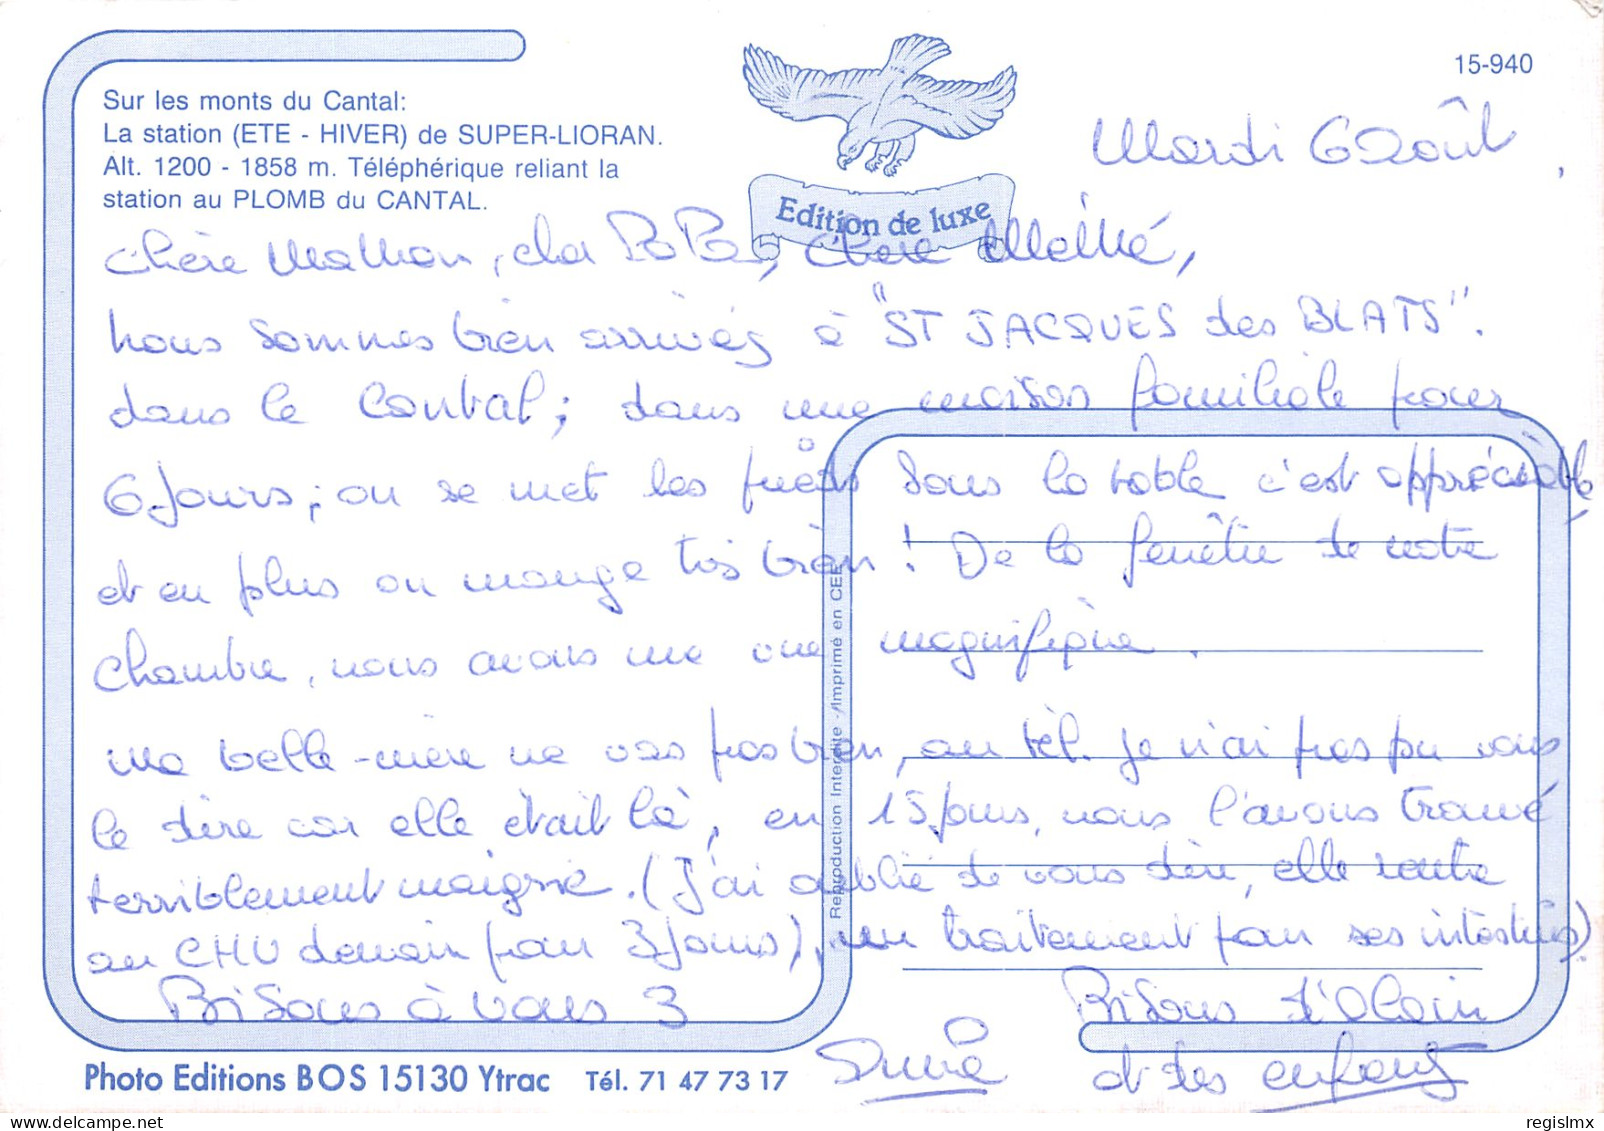 15-940
Sur les monts du Cantal:
La station (ETE - HIVER) de SUPER-LIORAN.
Alt. 1200 - 1858 m. Téléphérique reliant la
station au PLOMB du CANTAL.
Edition de luxe
Mardi 6 Août,
Chère Maman, cher PAPA, chère Mémé,
nous sommes bien arrivés à "ST JACQUES des BLATS".
dans le Cantal; dans une maison familiale pour
6 jours; on se met les pieds sous la table c'est appréciable
et en plus on mange très bien! De la fenêtre de notre
chambre, nous avons une vue magnifique.
Ma belle-mère ne vas pas bien, au tél. je n'ai pas pu vous
le dire car elle était là, en 15 jours, nous l'avons trouvé
terriblement maigrie. (J'ai oublié de vous dire, elle rentre
au CHU demain pour 3 jours), un traitement pour ses intestins)
Bisous à vous 3
Bisous d'Alain
et des enfants
Reproduction Interdite - Imprimé en CEE
Photo Editions BOS 15130 Ytrac Tél. 71 47 73 17
regislmx